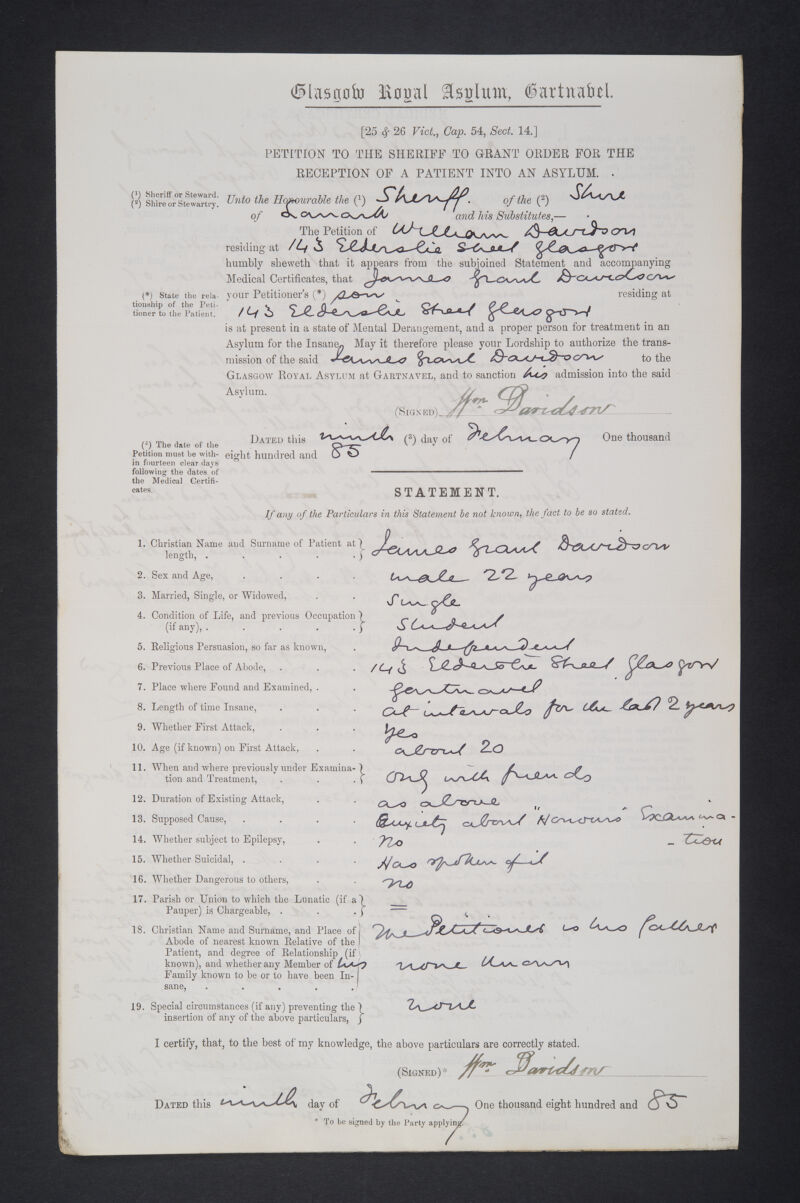 Glasgow Royal Asylum, Gartnabel.
[25 & 26 Vict., Cap. 54, Sect. 14.]
PETITION TO THE SHERIFF TO GRANT ORDER FOR THE
RECEPTION OF A PATIENT INTO AN ASYLUM.
(¹) Sheriff or Steward.
(²) Shire or Stewartry.
Unto the Honourable the (¹) Sheriff. of the (²) Shire
of Lanark and his Substitutes,—
The Petition of William Davidson
residing at 143 Elderslie Street Glasgow
humbly sheweth that it appears from the subjoined Statement and accompanying
Medical Certificates, that James Grant Davidson
(*) State the rela-
tionship of the Peti-
tioner to the Patient.
your Petitioner's (*) son residing at
143 Elderslie Street Glasgow
is at present in a state of Mental Derangement, and a proper person for treatment in an
Asylum for the Insane. May it therefore please your Lordship to authorize the trans-
mission of the said James Grant Davidson to the
GLASGOW ROYAL ASYLUM at GARTNAVEL, and to sanction his admission into the said
Asylum.
(SIGNED) Wm Davidson
(²) The date of the
Petition must be with-
in fourteen clear days
following the dates of
the Medical Certifi-
cates.
DATED this ninth (²) day of February One thousand
eight hundred and 85
STATEMENT.
If any of the Particulars in this Statement be not known, the fact to be so stated.
1. Christian Name and Surname of Patient at
length, . . . . . James Grant Davidson
2. Sex and Age, . . . . male 22 years
3. Married, Single, or Widowed, . . Single
4. Condition of Life, and previous Occupation
(if any), . . . . . Student
5. Religious Persuasion, so far as known, . Independent
6. Previous Place of Abode, . . . 143 Elderslie Street Glasgow
7. Place where Found and Examined, . . Gartnavel
8. Length of time Insane, . . . at intervals for the last 2 years
9. Whether First Attack, . . . Yes
10. Age (if known) on First Attack, . . about 20
11. When and where previously under Examina-
tion and Treatment, . . . only with friends
12. Duration of Existing Attack, . . as above
13. Supposed Cause, . . . . Anxiety about "Honours" Examina-
-tion
14. Whether subject to Epilepsy, . . No
15. Whether Suicidal, . . . . Has spoken of it
16. Whether Dangerous to others, . . no
17. Parish or Union to which the Lunatic (if a
Pauper) is Chargeable, . . . =
18. Christian Name and Surname, and Place of
Abode of nearest known Relative of the
Patient, and degree of Relationship (if
known), and whether any Member of his
Family known to be or to have been In-
sane, . . . . .
The Petitioner is his father
none known
19. Special circumstances (if any) preventing the
insertion of any of the above particulars, none
I certify, that, to the best of my knowledge, the above particulars are correctly stated.
(SIGNED)* Wm Davidson
DATED this ninth day of February One thousand eight hundred and 85
* To be signed by the Party applying.